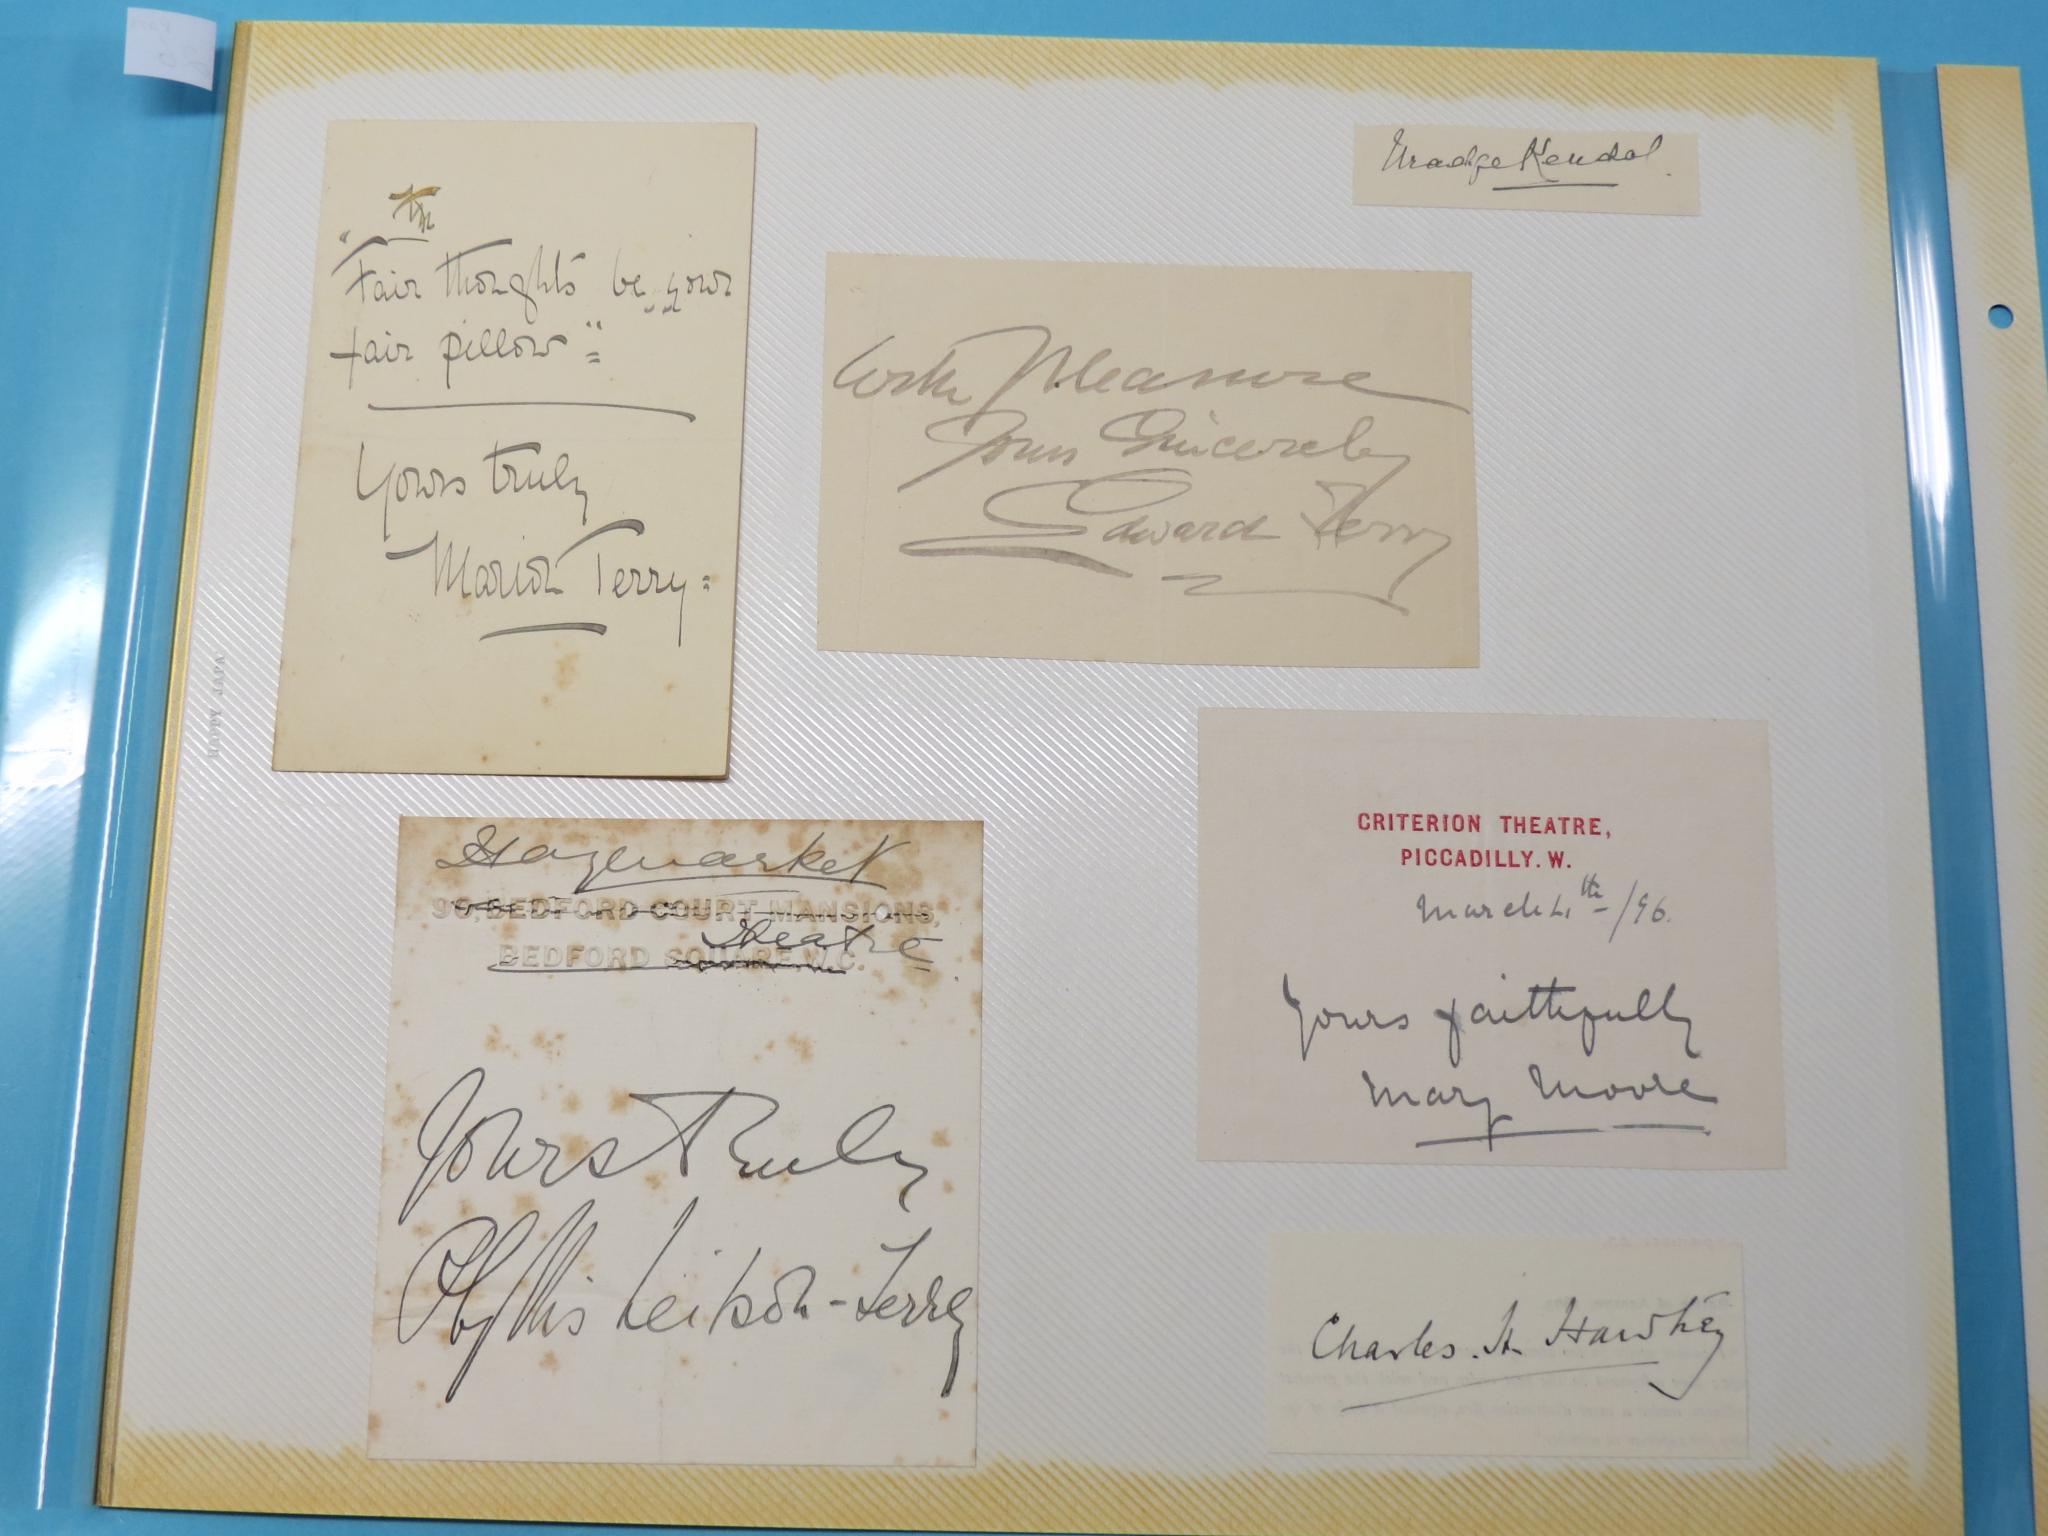 "Fair thoughts be your
fair pillow"=
Yours truly
Marion Terry=
Madge Kendal.
With Pleasure
Yours Sincerely
Edward Terry
Haymarket
90, BEDFORD COURT MANSIONS,
Theatre
BEDFORD SQUARE, W.C.
Yours Truly
Phyllis Neilson-Terry
CRITERION THEATRE,
PICCADILLY. W.
March 4th/96.
Yours faithfully
Mary Moore
Charles. H. Hawtrey